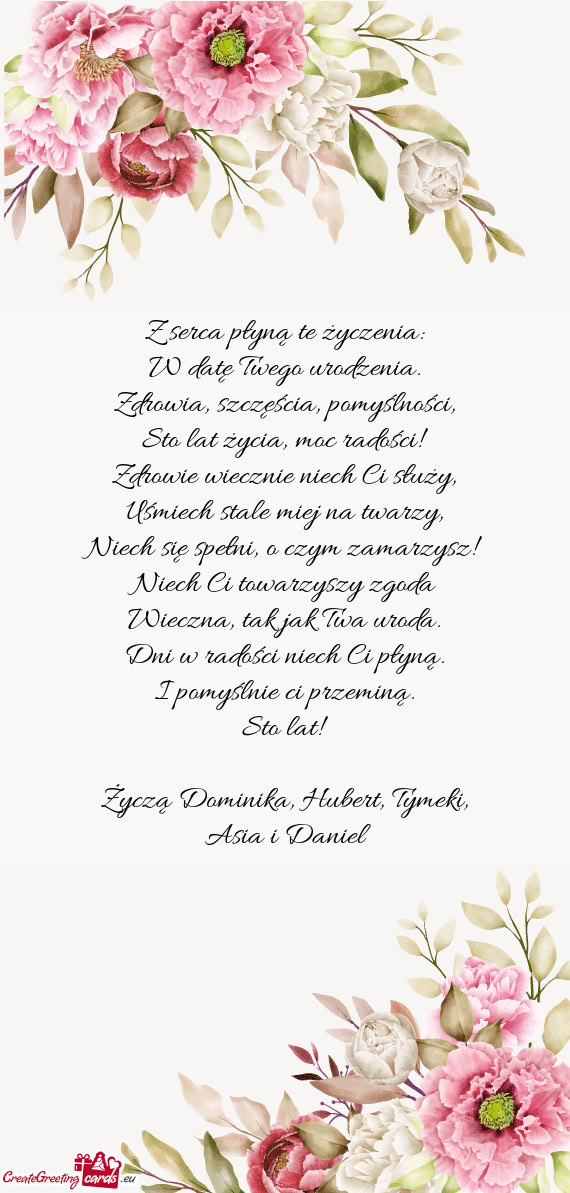 Z serca płyną te życzenia:
W datę Twego urodzenia.
Zdrowia, szczęścia, pomyślności,
Sto lat życia, moc radości!
Zdrowie wiecznie niech Ci służy,
Uśmiech stale miej na twarzy,
Niech się spełni, o czym zamarzysz!
Niech Ci towarzyszy zgoda
Wieczna, tak jak Twa uroda.
Dni w radości niech Ci płyną.
I pomyślnie ci przeminą.
Sto lat!
Życzą Dominika, Hubert, Tymeki,
Asia i Daniel
CreateGreeting cards .eu